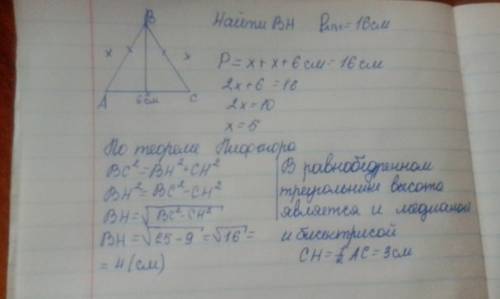 Найти BH P = 16 см
B
x x
A 6 см C
P = x + x + 6 см = 16 см
2x + 6 = 16
2x = 10
x = 5
По теореме Пифагора
BC² = BH² + CH²
BH² = BC² - CH²
BH = √BC² - CH²
BH = √25 - 9 = √16 =
= 4 (см)
В равнобедренном
треугольнике высота
является и медианой
и биссектрисой
CH = ½ AC = 3 см